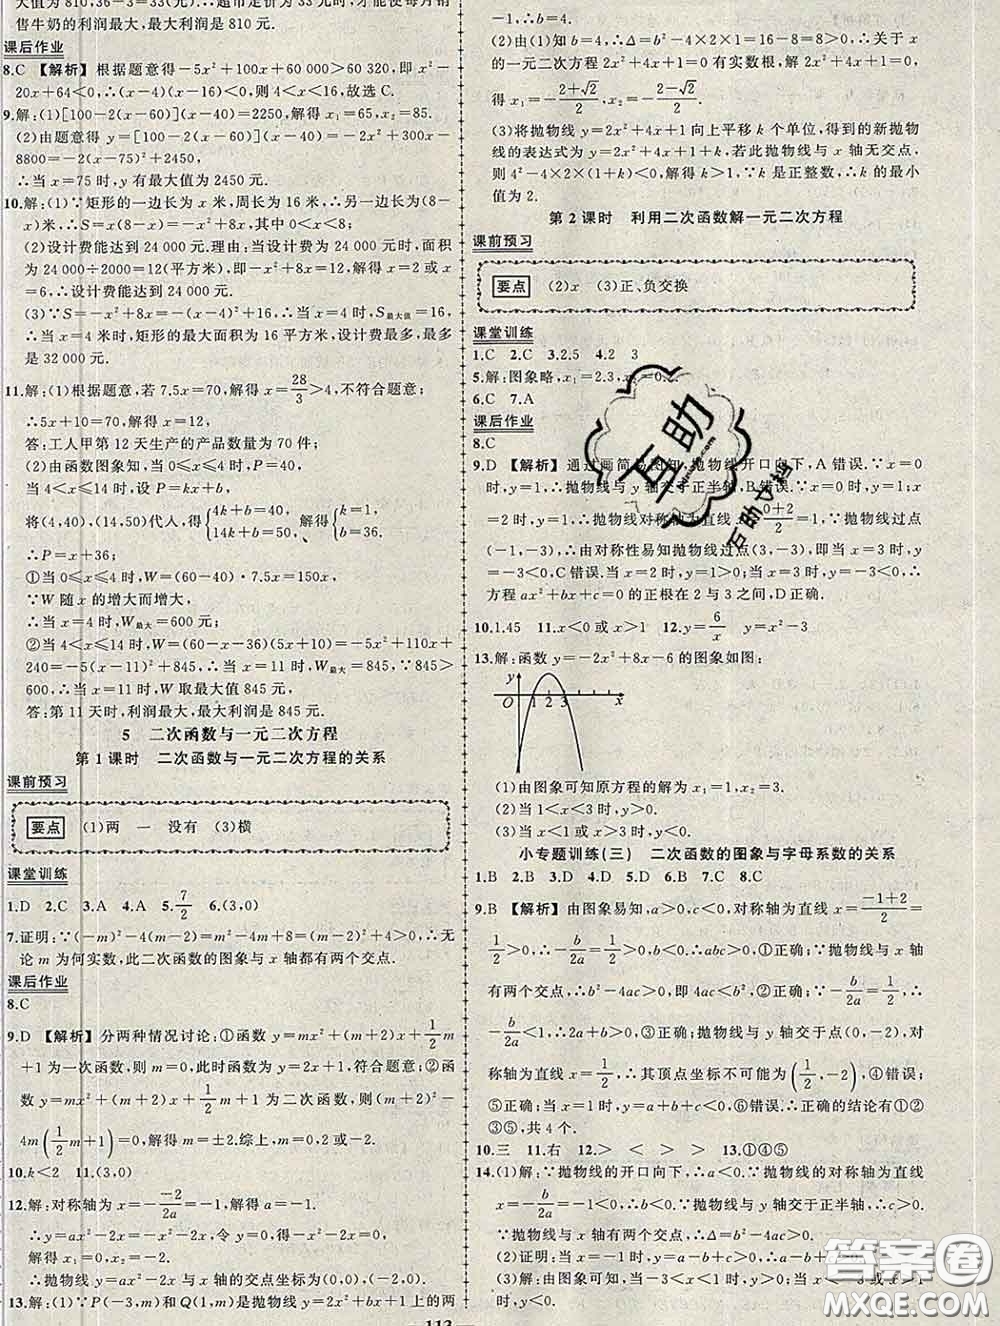 大值为810,36-3=33(元).∴超市定价为33元时,才能使每月销
售牛奶的利润最大,最大利润是810元.
课后作业
8.C 【解析】根据题意得-5x²+100x+60 000>60 320,即x²-
20x+64<0,∴(x-4)(x-16)<0,则4<x<16,故选C.
9.解:(1)[100-2(x-60)](x-40)=2250,解得x₁=65,x₂=85.
(2)由题意得y=[100-2(x-60)](x-40)=-2x²+300x-
8800=-2(x-75)²+2450,
∴当x=75时,y有最大值为2450元.
10.解:(1)∵矩形的一边长为x米,周长为16米,∴另一边长为(8-
x)米,∴S=x(8-x)=-x²+8x,其中0<x<8.
(2)设计费能达到24 000元.理由:当设计费为24 000元时,面积
为24 000÷2000=12(平方米),即-x²+8x=12,解得x=2或x
=6,∴设计费能达到24 000元.
(3)∵S=-x²+8x=-(x-4)²+16,∴当x=4时,S最大值=16,
∴当x=4时,矩形的最大面积为16平方米,设计费最多,最多
是32 000元.
11.解:(1)根据题意,若7.5x=70,解得x=28/3>4,不符合题意;
∴5x+10=70,解得x=12.
答:工人甲第12天生产的产品数量为70件;
(2)由函数图象知,当0≤x≤4时,P=40,
当4<x≤14时,设P=kx+b,
将(4,40),(14,50)代入,得{4k+b=40, 14k+b=50, 解得{k=1, b=36.
∴P=x+36;
①当0≤x≤4时,W=(60-40)·7.5x=150x,
∵W随x的增大而增大,
∴当x=4时,W最大=600元;
②当4<x≤14时,W=(60-x-36)(5x+10)=-5x²+110x+
240=-5(x-11)²+845,∴当x=11时,W最大=845,∵845>
600,∴当x=11时,W取最大值845元.
答:第11天时,利润最大,最大利润是845元.
5 二次函数与一元二次方程
第1课时 二次函数与一元二次方程的关系
课前预习
要点 (1)两 一 没有 (3)横
课堂训练
1.D 2.C 3.A 4.A 5.7/2 6.(3,0)
7.证明:∵(-m)²-4(m-2)=m²-4m+8=(m-2)²+4>0,∴无
论m为何实数,此二次函数的图象与x轴都有两个交点.
课后作业
8.C
9.D 【解析】分两种情况讨论:①函数y=mx²+(m+2)x+1/2m
+1为一次函数,则m=0,此时函数为y=2x+1,符合题意;②函
数y=mx²+(m+2)x+1/2m+1为二次函数,则(m+2)²-
4m(1/2m+1)=0,解得m=±2.综上,m=0,2或-2.
10.k<2 11.(3,0)
12.解:对称轴为x=-(-2)/2a=-1,解得a=-1.
∴y=ax²-2x=-x²-2x,令y=0,得-x²-2x=0,
解得x₁=0,x₂=-2.
∴抛物线y=ax²-2x与x轴的交点坐标为(-2,0),(0,0).
13.解:(1)∵P(-3,m)和Q(1,m)是抛物线y=2x²+bx+1上的两
-1,∴b=4.
(2)由(1)知b=4,∴Δ=b²-4×2×1=16-8=8>0,∴关于x
的一元二次方程2x²+4x+1=0有实数根,解2x²+4x+1=0,
得x₁=-(2+√2)/2,x₂=-(2-√2)/2.
(3)将抛物线y=2x²+4x+1向上平移k个单位,得到的新抛物
线的表达式为y=2x²+4x+1+k,若此抛物线与x轴无交点,
则4²-4×2×(1+k)<0,解得k>1,∵k是正整数,∴k的最小
值为2.
第2课时 利用二次函数解一元二次方程
课前预习
要点 (2)x (3)正、负交换
课堂训练
1.C 2.C 3.2.5 4.2 3
5.解:图象略,x₁=2.3,
6.C 7.A
课后作业
8.C
9.D 【解析】通过画简易图知,抛物线开口向下,A错误.∵x=0
时,y=1>0,∴抛物线与y轴交于正半轴,B错误.∵x=0,y=1;x=
2时,y=1,∴抛物线对称轴为直线x=(0+2)/2=1,∵抛物线过点
(-1,-3),∴由对称性易知抛物线过点(3,-3),即当x=3时,y
=-3<0,C错误.当x=2时,y=1>0;当x=3时,y=-3<0,∴
方程ax²+bx+c=0的正根在2与3之间,D正确.
10.1.45 11.x<0或x>1 12.y=6/x y=x²-3
13.解:函数y=-2x²+8x-6的图象如图:
y
O 1 2 3 x
(1)由图象可知原方程的解为x₁=1,x₂=3.
(2)当1<x<3时,y>0.
(3)当x<1或x>3时,y<0.
小专题训练(三) 二次函数的图象与字母系数的关系
1.B 2.B 3.D 4.D 5.D 6.B 7.C 8.C
9.B 【解析】由图象易知,a>0,c<0,对称轴为直线x=(-1+2)/2
=1/2>0,∴-b/2a=1/2>0,∴b<0,∴abc>0,①正确;∵抛物线与x轴
有两个交点,∴b²-4ac>0,即4ac<b²,∴②正确;∵-b/2a=1/2,∴
-b/2a<1,∴2a+b>0,③正确;∵抛物线与y轴交于点(0,-2),对
称轴为直线x=1/2,∴其顶点坐标不可能为(1/2,-2),④错误;
⑤正确;由图象知,当x<1/2时,y随x增大而减小,⑥错误;正确的结论有①②③
⑤,共4个.
10.三 11.右 12.> < > > 13.①④⑤
14.(1)解:∵抛物线的开口向下,∴a<0.∵抛物线的对称轴为直线
x=-b/2a=1>0,∴b>0.∵抛物线与y轴交于正半轴,∴c>0.
∵抛物线与x轴有两个交点,∴b²-4ac>0.
(2)证明:当x=-1时,y=
(3)解:当1<x<3时,y>0;当x<-1或
113
互助
互助文吗
答案圈
MXQE.COM